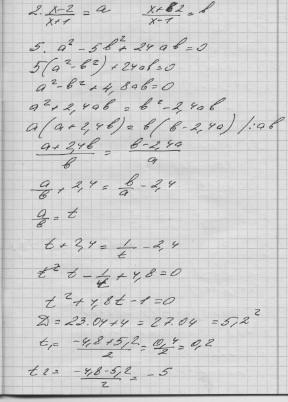 2. (x-2)/(x+1) = a    (x+2)/(x-1) = b
5. a² - 5b² + 24ab = 0
5(a² - b²) + 24ab = 0
a² - b² + 4,8ab = 0
a² + 2,4ab = b² - 2,4ab
a(a + 2,4b) = b(b - 2,4a) |:ab
(a + 2,4b)/b = (b - 2,4a)/a
a/b + 2,4 = b/a - 2,4
a/b = t
t + 2,4 = 1/t - 2,4
t - 1/t + 4,8 = 0
t² + 4,8t - 1 = 0
D = 23.04 + 4 = 27.04 = 5,2²
t₁ = (-4,8 + 5,2)/2 = 0,4/2 = 0,2
t2 = (-4,8 - 5,2)/2 = -5